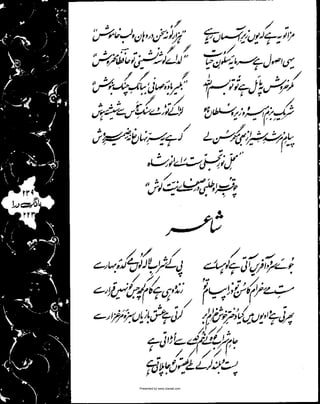 مزا تو یہ ہے کہ یوں زیرِ آسماں رہیے "ہزار گونہ سخن در دہان و لب خاموش"
یہی اصول ہے سرمایۂ سکونِ حیات "گدائے گوشہ نشینی تو حافظا مخروش"
مگر خروش پہ مائل ہے تو، تو بسم اللہ "بگیر بادۂ صافی، ببانگِ چنگ بنوش"
شریکِ بزمِ امیر و وزیر و سلطاں ہو لڑا کے توڑ دے سنگِ ہوس سے شیشۂ ہوش
پیامِ مرشدِ شیراز بھی مگر سن لے کہ ہے یہ سرِّ نہاں خانۂ ضمیرِ سروش
"محلِ نورِ تجلی ست رائے انورِ شاہ
چو قربِ او طلبی درصفائے نیت کوش"
۲۳۹
بانگِ درا
۲۲۳
شاعر
جوئے سرود آفریں آتی ہے کوہسار سے پی کے شرابِ لالہ گوں مے کدۂ بہار سے
مستِ مے خرام کا سن تو ذرا پیام تو زندہ وہی ہے کام کچھ جس کو نہیں قرار سے
پھرتی ہے وادیوں میں کیا دخترِ خوش خرامِ ابر کرتی ہے عشق بازیاں سبزۂ مرغزار سے
جامِ شراب کوہ کے خم کدے سے اڑاتی ہے
پست و بلند کر کے طے کھیتوں کو جا پلاتی ہے
Presented by www.ziaraat.com